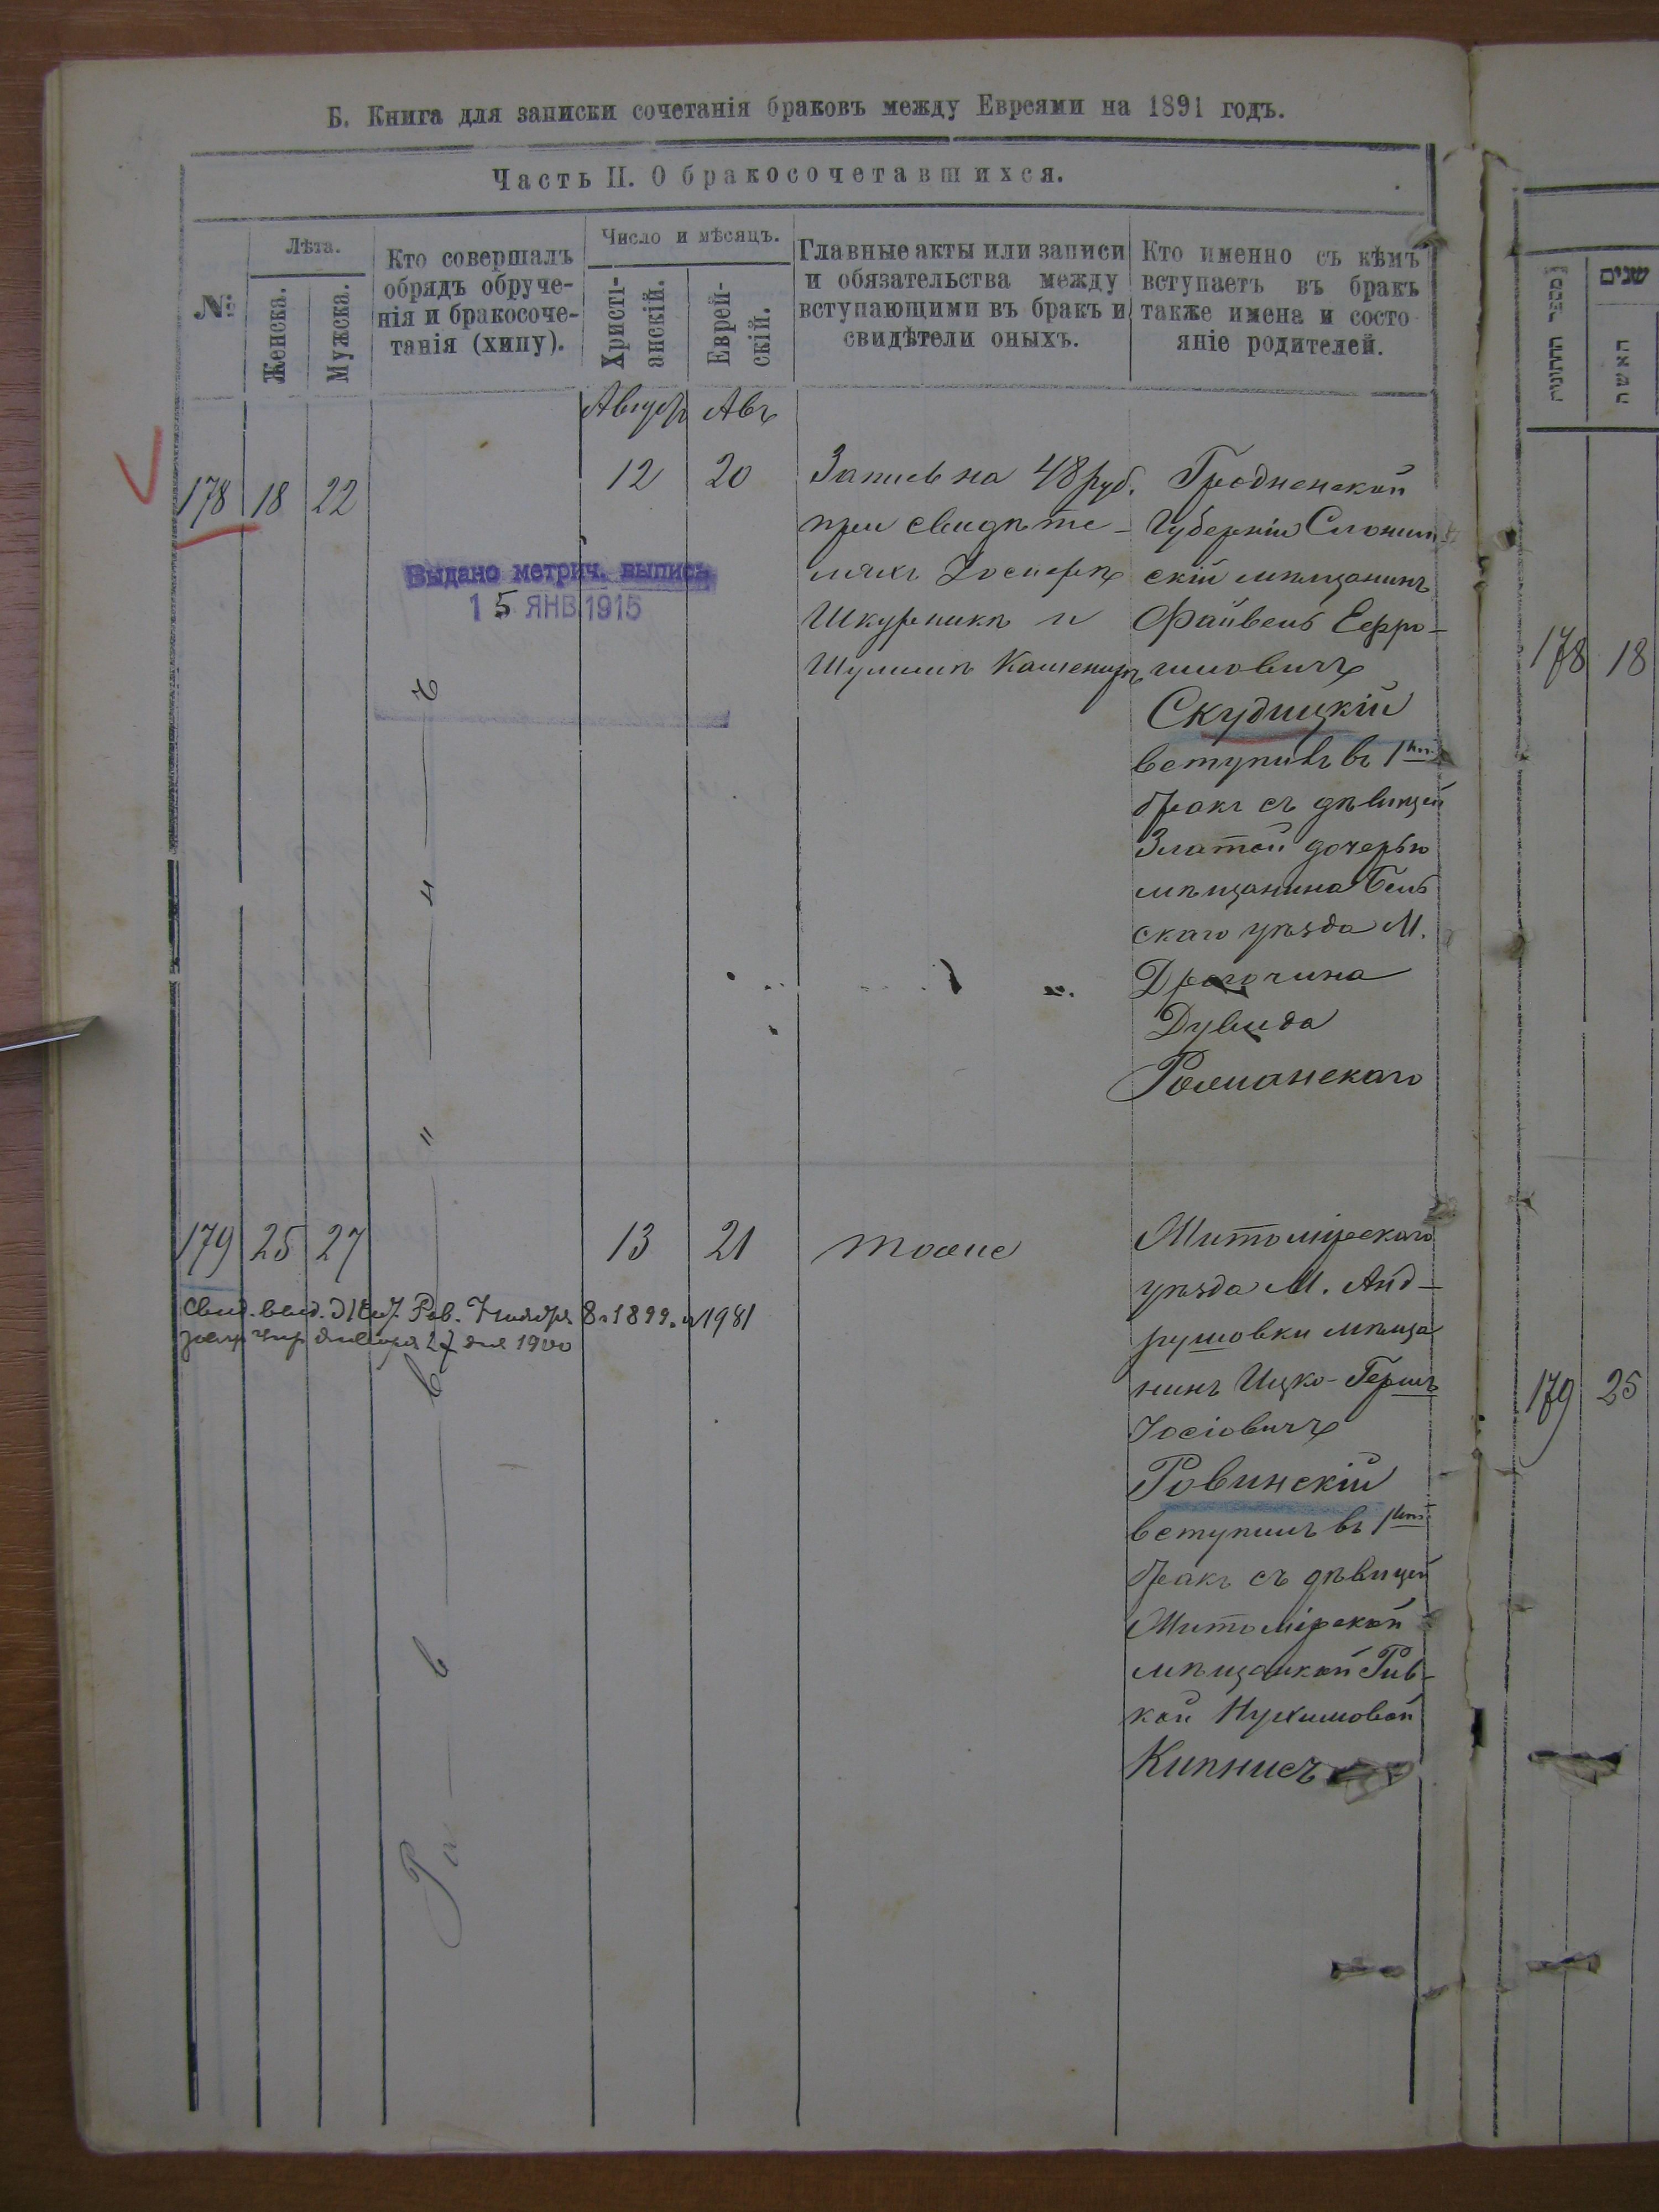 Б. Книга для записки сочетанія браковъ между Евреями на 1891 годъ.
Часть II. О бракосочетавшихся.
№
Лѣта.
Женска.
Мужска.
Кто совершалъ
обрядъ обруче-
нія и бракосоче-
танія (хипу).
Число и мѣсяцъ.
Христі-
анскій.
Еврей-
скій.
Главные акты или записи
и обязательства между
вступающими въ бракъ и
свидѣтели оныхъ.
Кто именно съ кѣмъ
вступаетъ въ бракъ
также имена и состо
яніе родителей.
Августъ Авъ
178 18 22 12 20
Запись на 48 руб.
при свидѣте-
ляхъ Іосифѣ
Шкурникѣ и
Шулимѣ
Гродненской
Губерніи Слоним
скій мѣщанинъ
Файвель Ефро-
имовичъ
Скудицкій
вступилъ въ 1й
бракъ съ дѣвицей
Златой дочерью
мѣщанина Бель
скаго уѣзда М.
Дрогочина
Дувида
Выдано метрич. выпись
15 ЯНВ 1915
179 25 27 13 21 тоже
Житомірскаго
уѣзда М. Анд-
рушовки мѣща
нинъ Ицко-Гершъ
Іосіовичъ
Ровинскій
вступилъ въ 1й
бракъ съ дѣвицей
Житомірской
мѣщанкой Рив-
кой Нухимовой
Кипнисъ
1899 1981
27 дня 1900
שנים
מספר החתונות
האשה
178 18
179 25